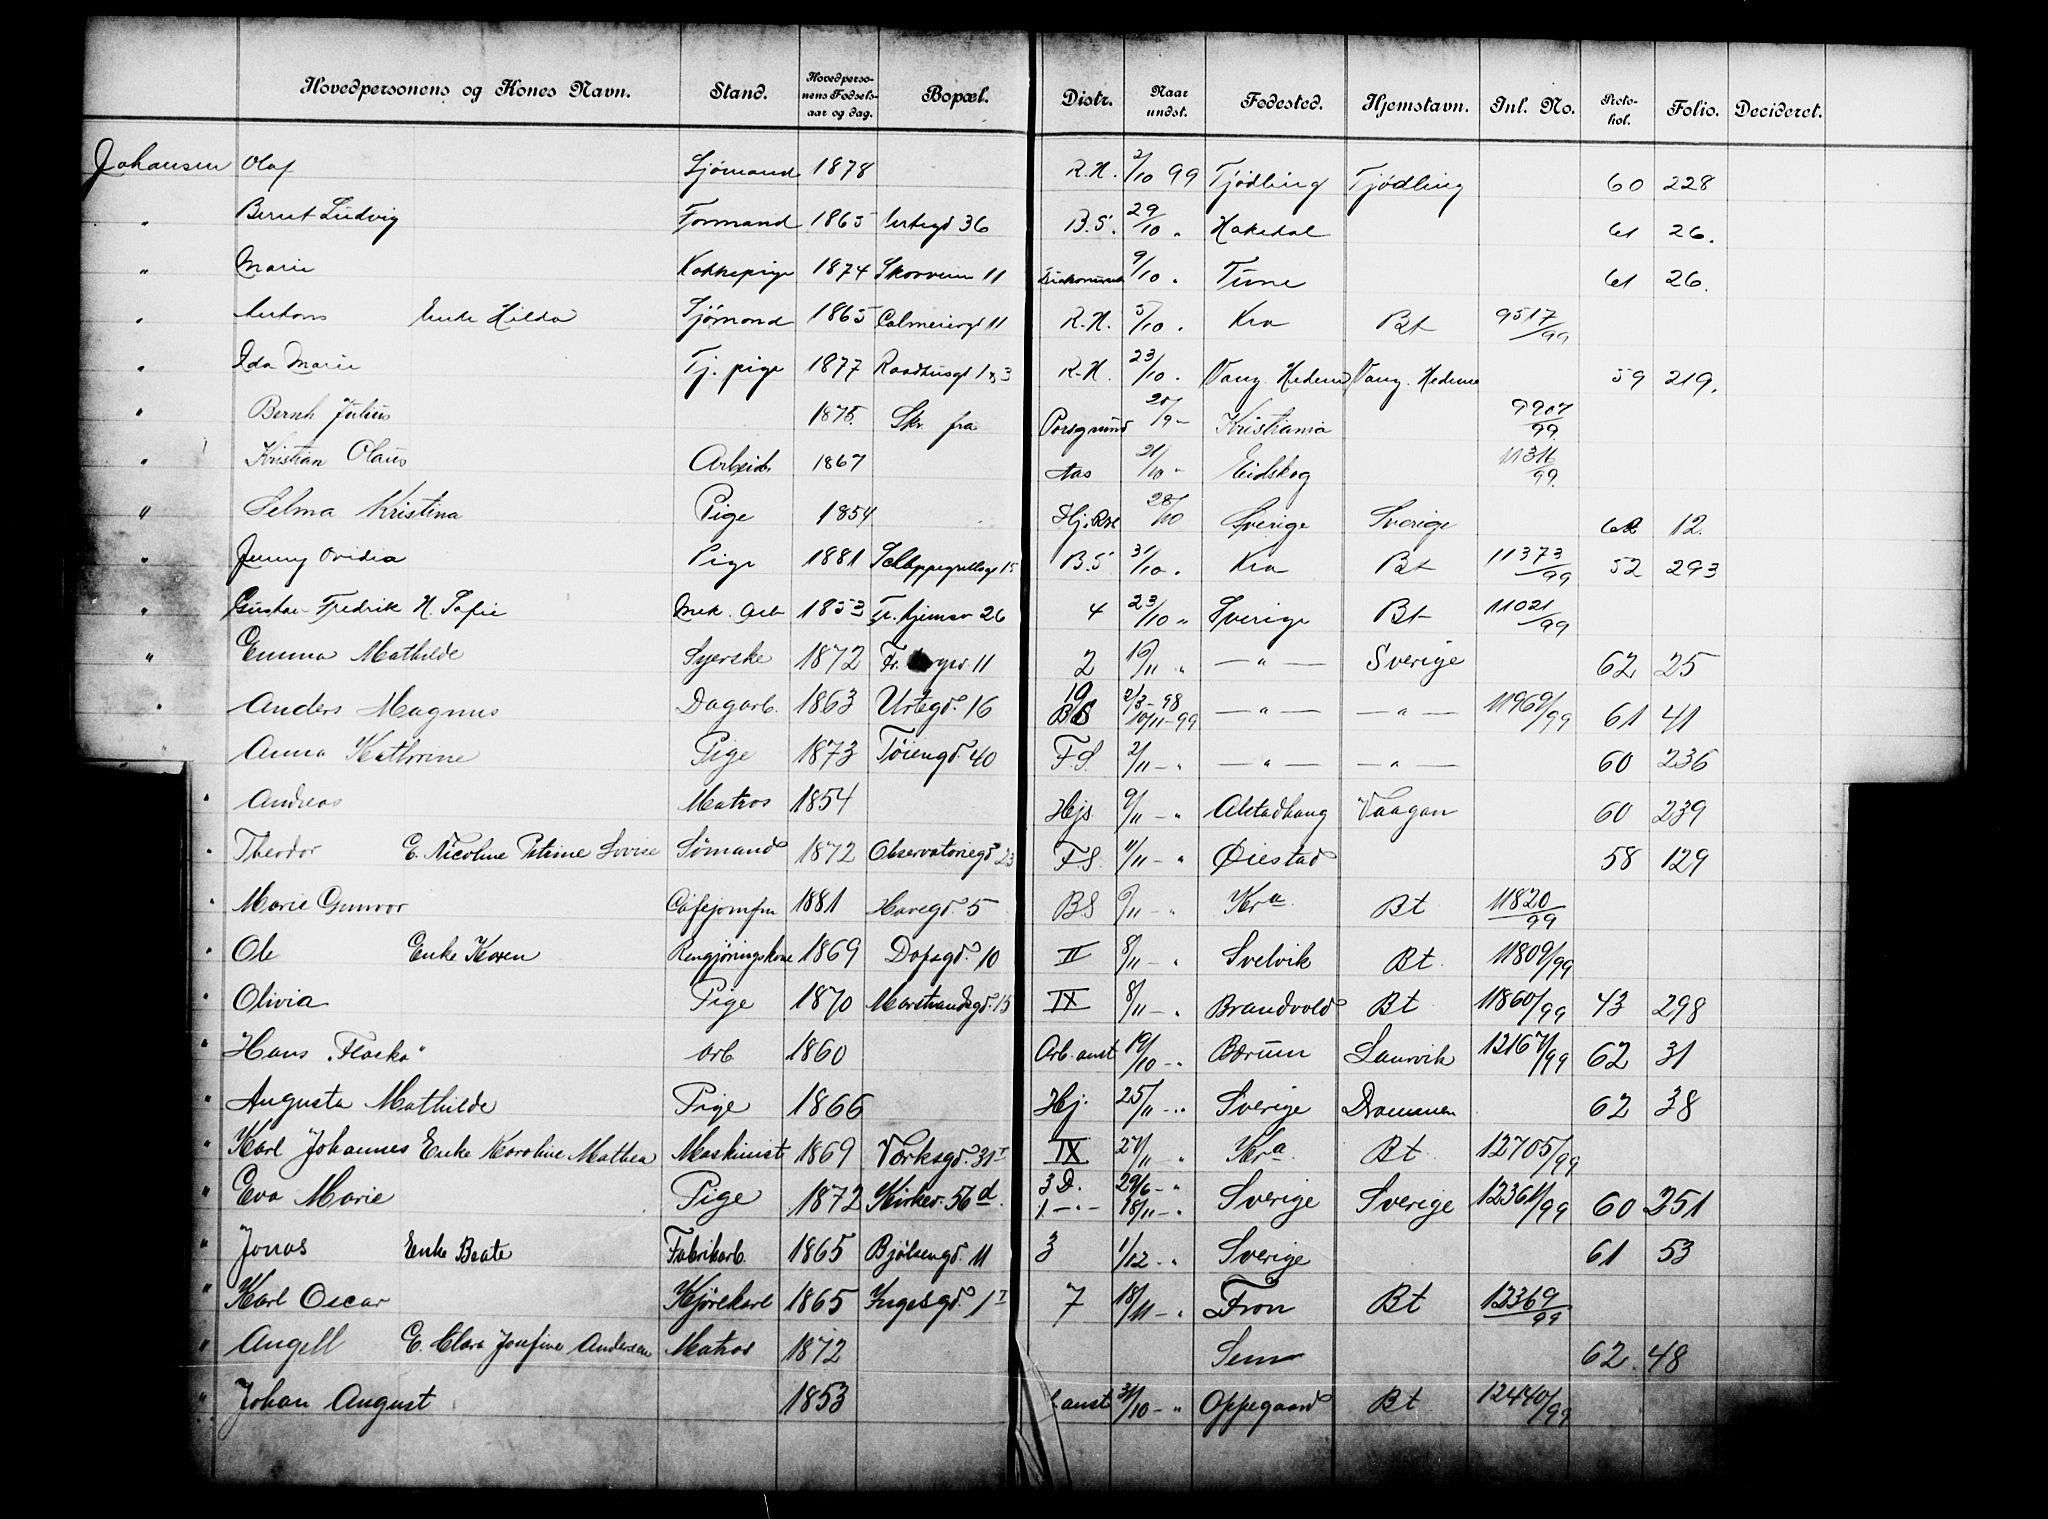 Hovedpersonens og Kones Navn. Stand. Hovedperso-nens Fødsels-aar og dag. Bopæl. Distr. Naar undst. Fødested. Hjemstavn. Inl. No. Proto-kol. Folio. Decideret.
Johansen Olaf Sjømand 1878 R.H. 2/10 99 Tjødling Tjødling 60 228
" Bernt Ludvig Formand 1865 Urtegd 36 B.S. 29/10 " Hakedal 61 26.
" Marie Kokkepige 1874 Skovveien 11 9/10 " Tune 61 26.
" Antons Enke Hilda Sjømand 1865 Calmeiergd 11 R.H. 5/10 " Kra Bt 9517/99
" Ida Marie Tj. pige 1877 Raadhusgd 1 & 3 R.H. 23/10 " Vang. Hedem Vang. Hedem 59 219.
" Bernh Julius 1875. Skr. fra Porsgrund 20/9 - Kristiania 9907/99.
" Kristian Olaus Arbeid. 1867 Aas 21/10 " Eidskog 11311/99.
" Selma Kristina Pige 1854 Hj. 28/10 Sverige Sverige 62 12.
" Jenny Ovidia Pige 1881 Schleppegrellsgd 15 B.S 31/10 " Kra Bt 11373/99 52 293
" Gustav Fredrik H. Sofie Mek. Arb 1853 Tr.hjemsv 26 4 23/10 " Sverige Bt 11021/99
" Emma Mathilde Syerske 1872 Fr. 11 2 16/11 " — " — Sverige 62 25
" Anders Magnus Dagarb. 1863 Urtegd. 16 10 BS 2/3-98 10/11-99 — " — — " — 11969/99 61 41
Anna Kathrine Pige 1873 Tøiengd. 40 F.S. 2/11 - " — " — — " — 60 236
" Andreas Matros 1854 Hjs. 9/11 - " Alstadhaug Vaagan 60 239
" Theodor E. Nicoline Petrine Lovise Sømand 1872 Observatoriegd 23 F.S. 11/11 - " Øiestad 58 129
" Marie Gunvor Cafejomfru 1881 Havegd. 5 BS 9/11 - " Kra. Bt 11820/99
" Ole Enke Karen Rengjøringskone 1869 Dopsgd. 10 II 8/11 - " Svelvik Bt 11809/99
" Olivia Pige 1870 Marstrandsgd. 15 IX 8/11 - " Brandvold Bt 11860/99 43 298
" Hans "Flaska" Arb 1860 Arb. anst 19/10 - " Bærum Laurvik 12167/99 62 31
" Augusta Mathilde Pige 1866 Hj. 25/11 - " Sverige Drammen 62 38
" Karl Johannes Enke Karoline Mathea Maskinist 1869 Verksgd. 31 I IX 27/11 " Kra. Bt 12705/99
" Eva Marie Pige 1872 Kirkev. 56 d. 3 D. 1. - " - 29/6 - " 18/11 - " Sverige Sverige 12361/99 60 251
" Jonas Enke Beate Fabrikarb. 1865 Bjølsengd. 11 3 1/12 - " Sverige 61 53
" Karl Oscar Kjørekarl 1865 Ingesgd. 1 I 7 18/11 - " Fron Bt 12369/99
" Angell E. Clara Josefine Andersen Matros 1872 Sem 62 48
" Johan August 1853 anst 31/10 - " Oppegaard Bt 12440/99